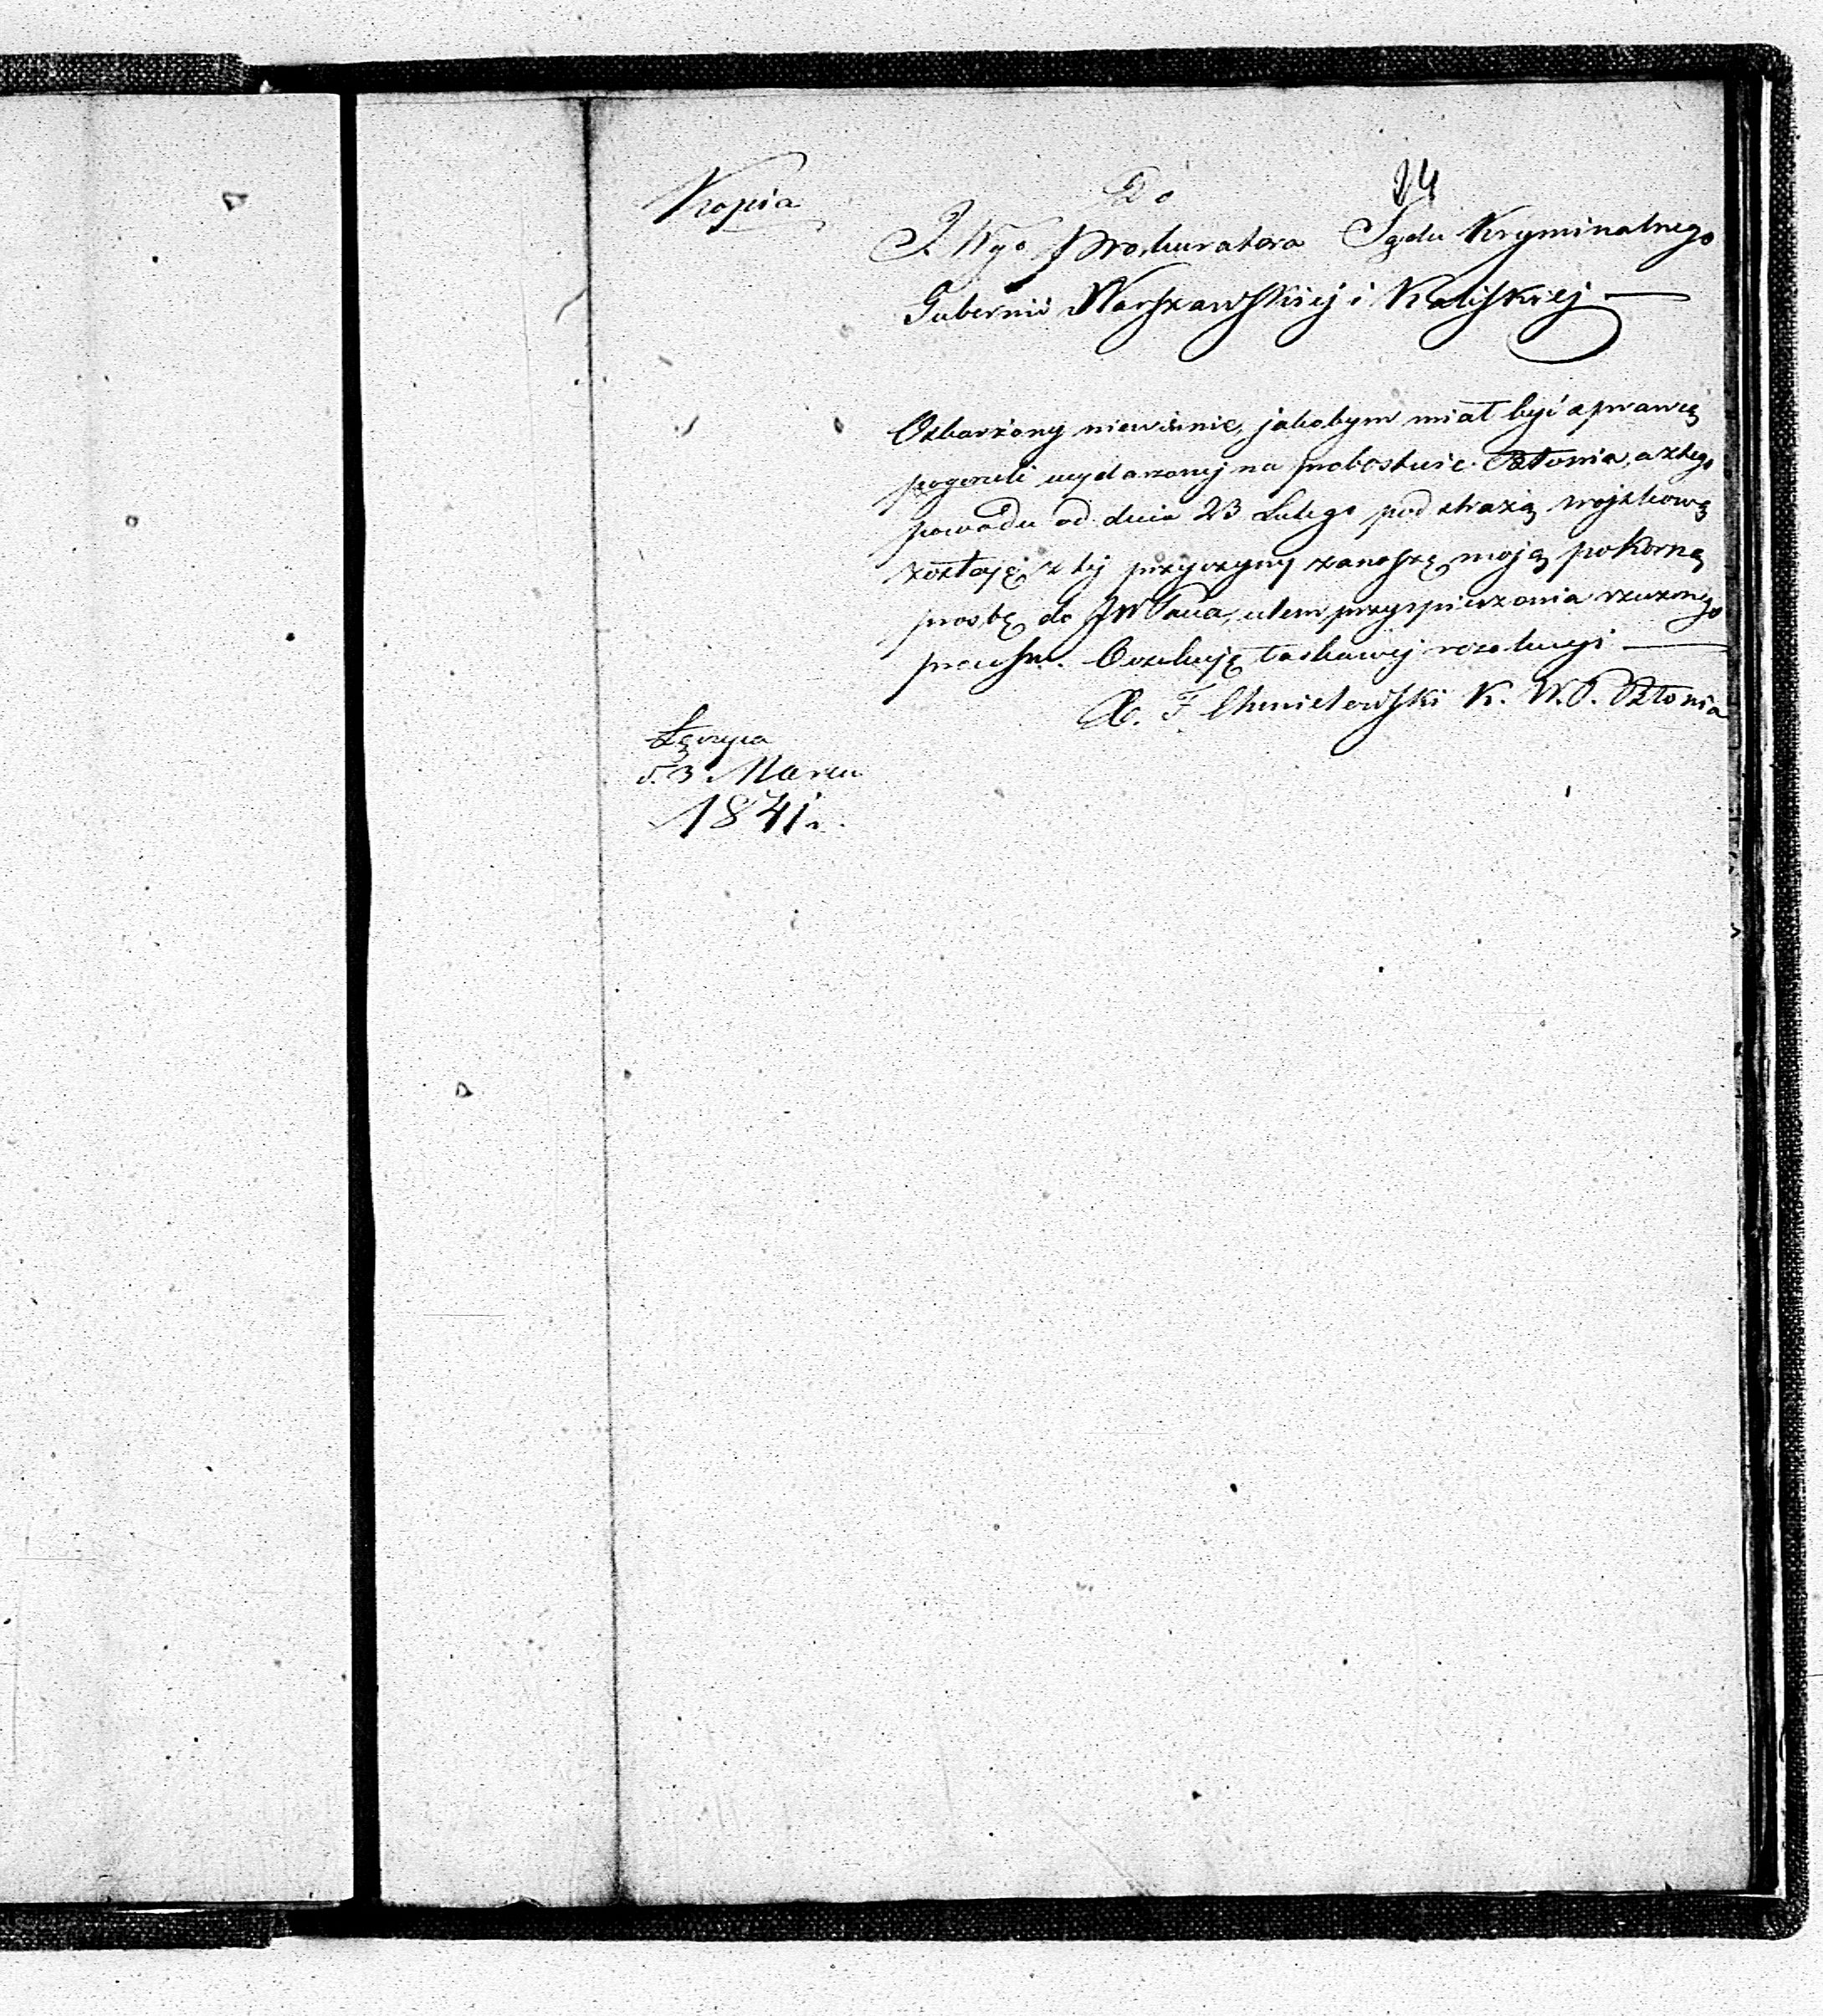 24
Kopia
Do
J. Wgo Prokuratora Sądu Kryminalnego
Gubernii Warszawskiej i Kaliskiej
Oskarżony niewinnie, jakobym miał być sprawcą
pogorzeli wydarzonej na probostwie Błonia, a z tego
powodu od dnia 23 Lutego pod strażą wojskową
zostaję, z tej przyczyny zanoszę moją pokorną
prosbę do JW Pana, celem przyspieszenia rzeczonego
processu. Oczekuję łaskawej rezolucyi
X. F Chmielewski K. W. P. Błonia
Łęczyca
d. 3 Marca
1841 r.